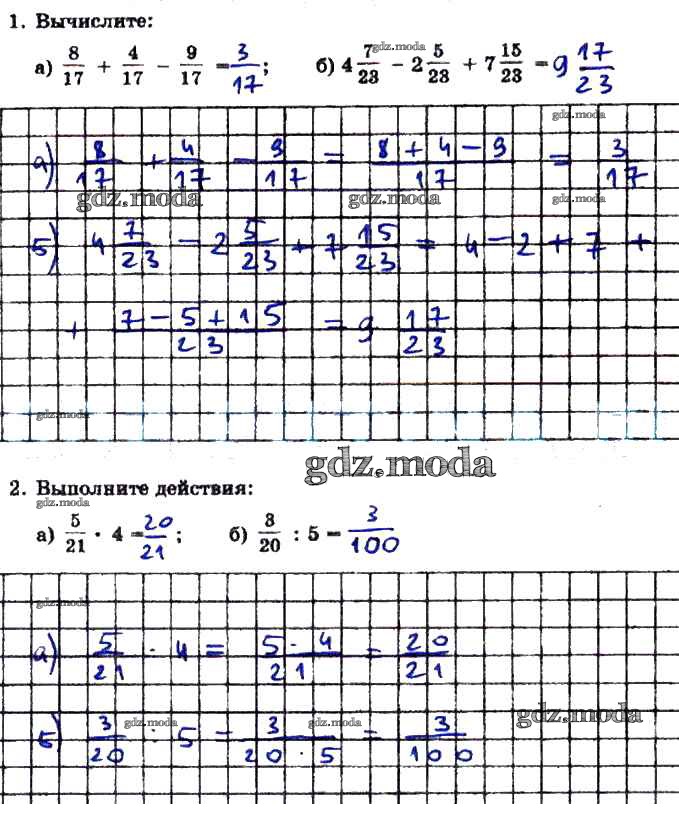 1. Вычислите:
а) 8/17 + 4/17 − 9/17 = 3/17; б) 4 7/23 − 2 5/23 + 7 15/23 = 9 17/23
gdz.moda
gdz.moda
а) 8/17 + 4/17 − 9/17 = (8 + 4 − 9)/17 = 3/17
gdz.moda gdz.moda gdz.moda
б) 4 7/23 − 2 5/23 + 7 15/23 = 4 − 2 + 7 +
+ (7 − 5 + 15)/23 = 9 17/23
gdz.moda
gdz.moda
2. Выполните действия:
gdz.moda
а) 5/21 · 4 = 20/21; б) 3/20 : 5 = 3/100
gdz.moda
а) 5/21 · 4 = (5 · 4)/21 = 20/21
gdz.moda
б) 3/20 : 5 = 3/(20 · 5) = 3/100
gdz.moda gdz.moda